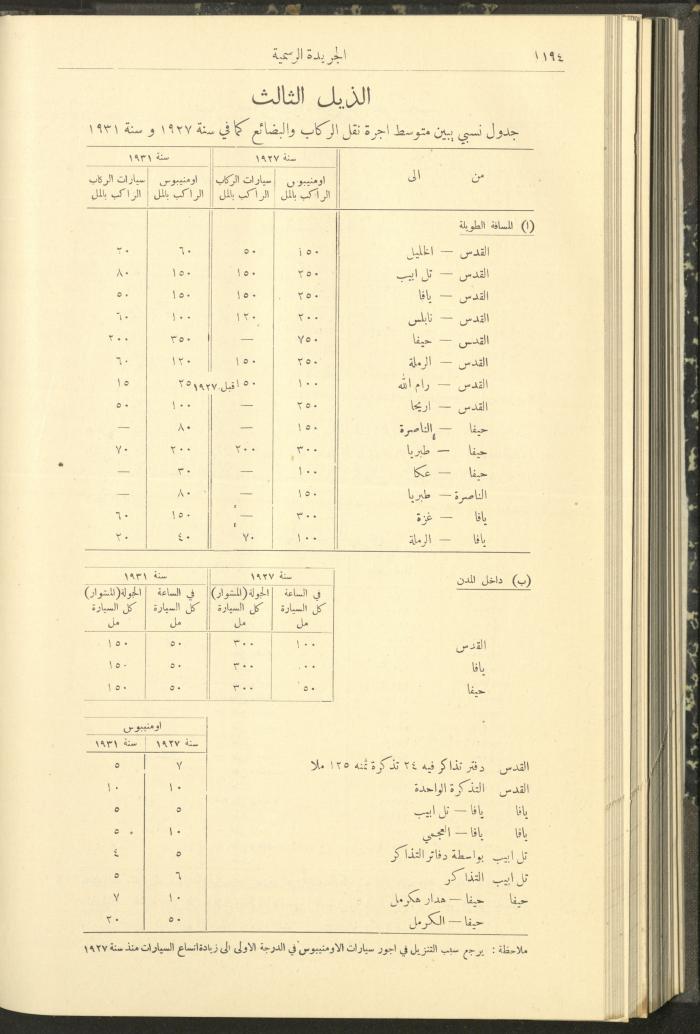 ١١٩٤ الجريدة الرسمية
الذيل الثالث
جدول نسبي يبين متوسط اجرة نقل الركاب والبضائع كما في سنة ١٩٢٧ و سنة ١٩٣١
سنة ١٩٢٧ سنة ١٩٣١
من الى اومنيبوس سيارات الركاب اومنيبوس سيارات الركاب
الراكب بالمل الراكب بالمل الراكب بالمل الراكب بالمل
(ا) للسافة الطويلة
القدس — الخليل ١٥٠ ٥٠ ٦٠ ٢٠
القدس — تل ابيب ٢٥٠ ١٥٠ ١٥٠ ٨٠
القدس — يافا ٢٥٠ ١٥٠ ١٥٠ ٥٠
القدس — نابلس ٢٠٠ ١٢٠ ١٠٠ ٦٠
القدس — حيفا ٧٥٠ — ٣٥٠ ٢٠٠
القدس — الرملة ٢٥٠ ١٥٠ ١٢٠ ٦٠
القدس — رام الله ١٠٠ ٥٠ اقبل ١٩٢٧ ٢٥ ١٥
القدس — اريحا ٢٥٠ — ١٠٠ ٥٠
حيفا — الناصرة ١٥٠ — ٨٠ —
حيفا — طبريا ٣٠٠ ٢٠٠ ٢٠٠ ٧٠
حيفا — عكا ١٠٠ — ٣٠ —
الناصرة — طبريا ١٥٠ — ٨٠ —
يافا — غزة ٣٠٠ — ١٥٠ ٦٠
يافا — الرملة ١٠٠ ٧٠ ٤٠ ٢٠
(ب) داخل المدن سنة ١٩٢٧ سنة ١٩٣١
في الساعة الجولة (المشوار) في الساعة الجولة (المشوار)
كل السيارة كل السيارة كل السيارة كل السيارة
مل مل مل مل
القدس ١٠٠ ٣٠٠ ٥٠ ١٥٠
يافا ٠٠ ٣٠٠ ٥٠ ١٥٠
حيفا ٥٠ ٣٠٠ ٥٠ ١٥٠
اومنيبوس
سنة ١٩٢٧ سنة ١٩٣١
القدس دفتر تذاكر فيه ٢٤ تذكرة ثمنه ١٢٥ ملا ٧ ٥
القدس التذكرة الواحدة ١٠ ١٠
يافا يافا — تل ابيب ٥ ٥
يافا يافا — العجمي ١٠ ٥
تل ابيب بواسطة دفاتر التذاكر ٥ ٤
تل ابيب التذاكر ٦ ٥
حيفا حيفا — هدار هكرمل ١٠ ٧
حيفا — الكرمل ٥٠ ٢٠
ملاحظة : يرجع سبب التنزيل في اجور سيارات الاومنيبوس في الدرجة الاولى الى زيادة اتساع السيارات منذ سنة ١٩٢٧